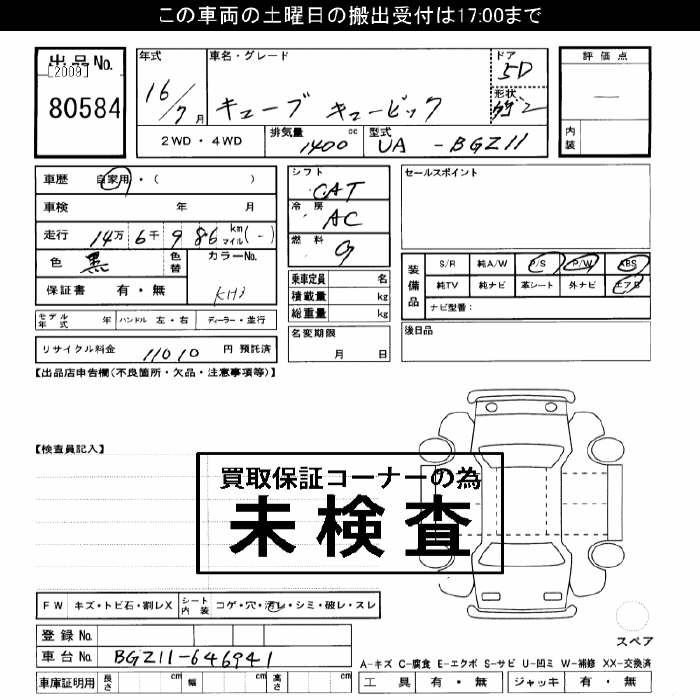 この車両の土曜日の搬出受付は17:00まで
出品No.
[2009]
80584
年式
16/7月
車名・グレード
キューブ キュービック
ドア
5D
形状
評価点
内装
2WD・4WD
排気量
1400 cc
型式
UA - BGZ11
車歴 自家用・( )
車検 年 月
走行 14万 6千 9 86 km マイル (-)
色 黒
色替
カラーNo.
KH3
保証書 有・無
モデル年式 年 ハンドル 左・右 ディーラー・並行
リサイクル料金 11010 円 預託済
シフト
CAT
冷房
AC
燃料
G
乗車定員 名
積載量 kg
総重量 kg
名変期限
月 日
セールスポイント
装備品
S/R 純A/W P/S P/W ABS
純TV 純ナビ 革シート 外ナビ エアB
ナビ型番:
後日品
【出品店申告欄(不良箇所・欠品・注意事項等)】
【検査員記入】
買取保証コーナーの為
未検査
FW キズ・トビ石・割レX シート内装 コゲ・穴・汚レ・シミ・破レ・スレ
登録No.
車台No. BGZ11-646941
車庫証明用 長さ cm 幅 cm 高さ cm
スペア
A-キズ C-腐食 E-エクボ S-サビ U-凹ミ W-補修 XX-交換済
工具 有・無 ジャッキ 有・無